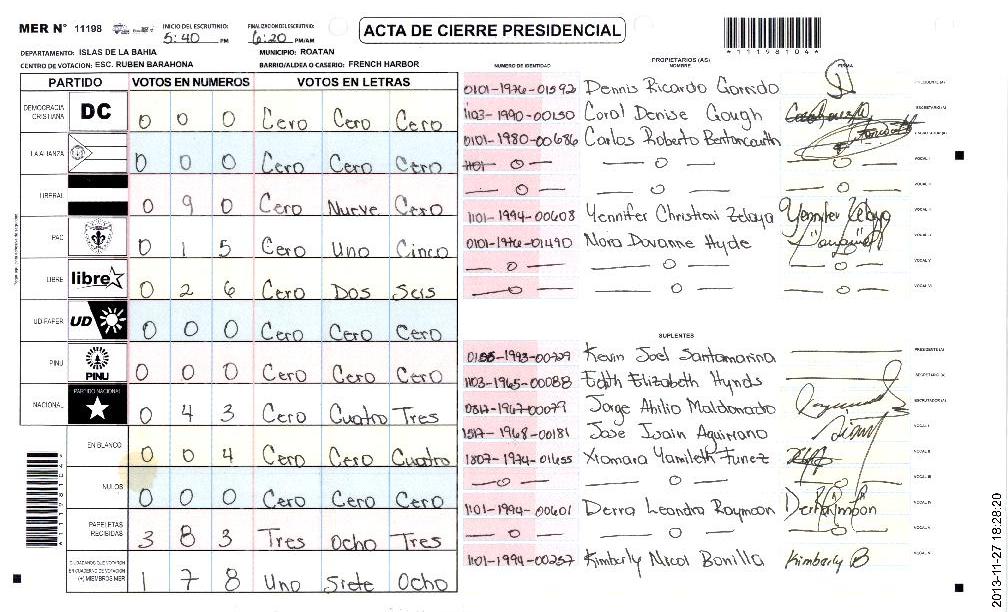 MER N° 11198 INICIO DEL ESCRUTINIO: 5:40 PM FINALIZACION DEL ESCRUTINIO: 6:20 PM/AM
ACTA DE CIERRE PRESIDENCIAL
*11198104*
DEPARTAMENTO: ISLAS DE LA BAHIA MUNICIPIO: ROATAN
CENTRO DE VOTACION: ESC. RUBEN BARAHONA BARRIO/ALDEA O CASERIO: FRENCH HARBOR
PARTIDO VOTOS EN NUMEROS VOTOS EN LETRAS
DEMOCRACIA CRISTIANA DC 0 0 0 Cero Cero Cero
LA ALIANZA 0 0 0 Cero Cero Cero
LIBERAL 0 9 0 Cero Nueve Cero
PAC 0 1 5 Cero Uno Cinco
LIBRE libre 0 2 6 Cero Dos Seis
UD-FAPER UD 0 0 0 Cero Cero Cero
PINU PINU 0 0 0 Cero Cero Cero
NACIONAL PARTIDO NACIONAL 0 4 3 Cero Cuatro Tres
EN BLANCO 0 0 4 Cero Cero Cuatro
NULOS 0 0 0 Cero Cero Cero
PAPELETAS RECIBIDAS 3 8 3 Tres Ocho Tres
CIUDADANOS QUE VOTARON EN CUADERNO DE VOTACION (+) MIEMBROS MER 1 7 8 Uno Siete Ocho
PROPIETARIOS (AS)
NUMERO DE IDENTIDAD NOMBRE FIRMA
0101-1976-01592 Dennis Ricardo PRESIDENTE (A)
1103-1990-00150 Coral Denise Gough SECRETARIO (A)
0101-1980-00686 Carlos Roberto ESCRUTADOR (A)
0 0 0 VOCAL I
0 0 0 VOCAL II
1101-1994-00608 Yennifer Christani Zelaya Yennifer Zelaya VOCAL III
0101-1976-01490 Nora Hyde VOCAL IV
0 0 0 VOCAL V
0 0 0 VOCAL VI
SUPLENTES
1993-00729 Kevin Joel Santamarina PRESIDENTE (A)
1103-1965-00088 Edith Elizabeth Hynds SECRETARIO (A)
1967-00079 Jorge Abilio Maldonado ESCRUTADOR (A)
1968-00181 Jose VOCAL I
1807-1974-01655 Xiomara Yamileth Funez VOCAL II
0 0 VOCAL III
1101-1994-00601 Leandra VOCAL IV
0 0 0 VOCAL V
1101-1994-00257 Kimberly Nicol Bonilla Kimberly B VOCAL VI
*11198104*
2013-11-27 18:28:20